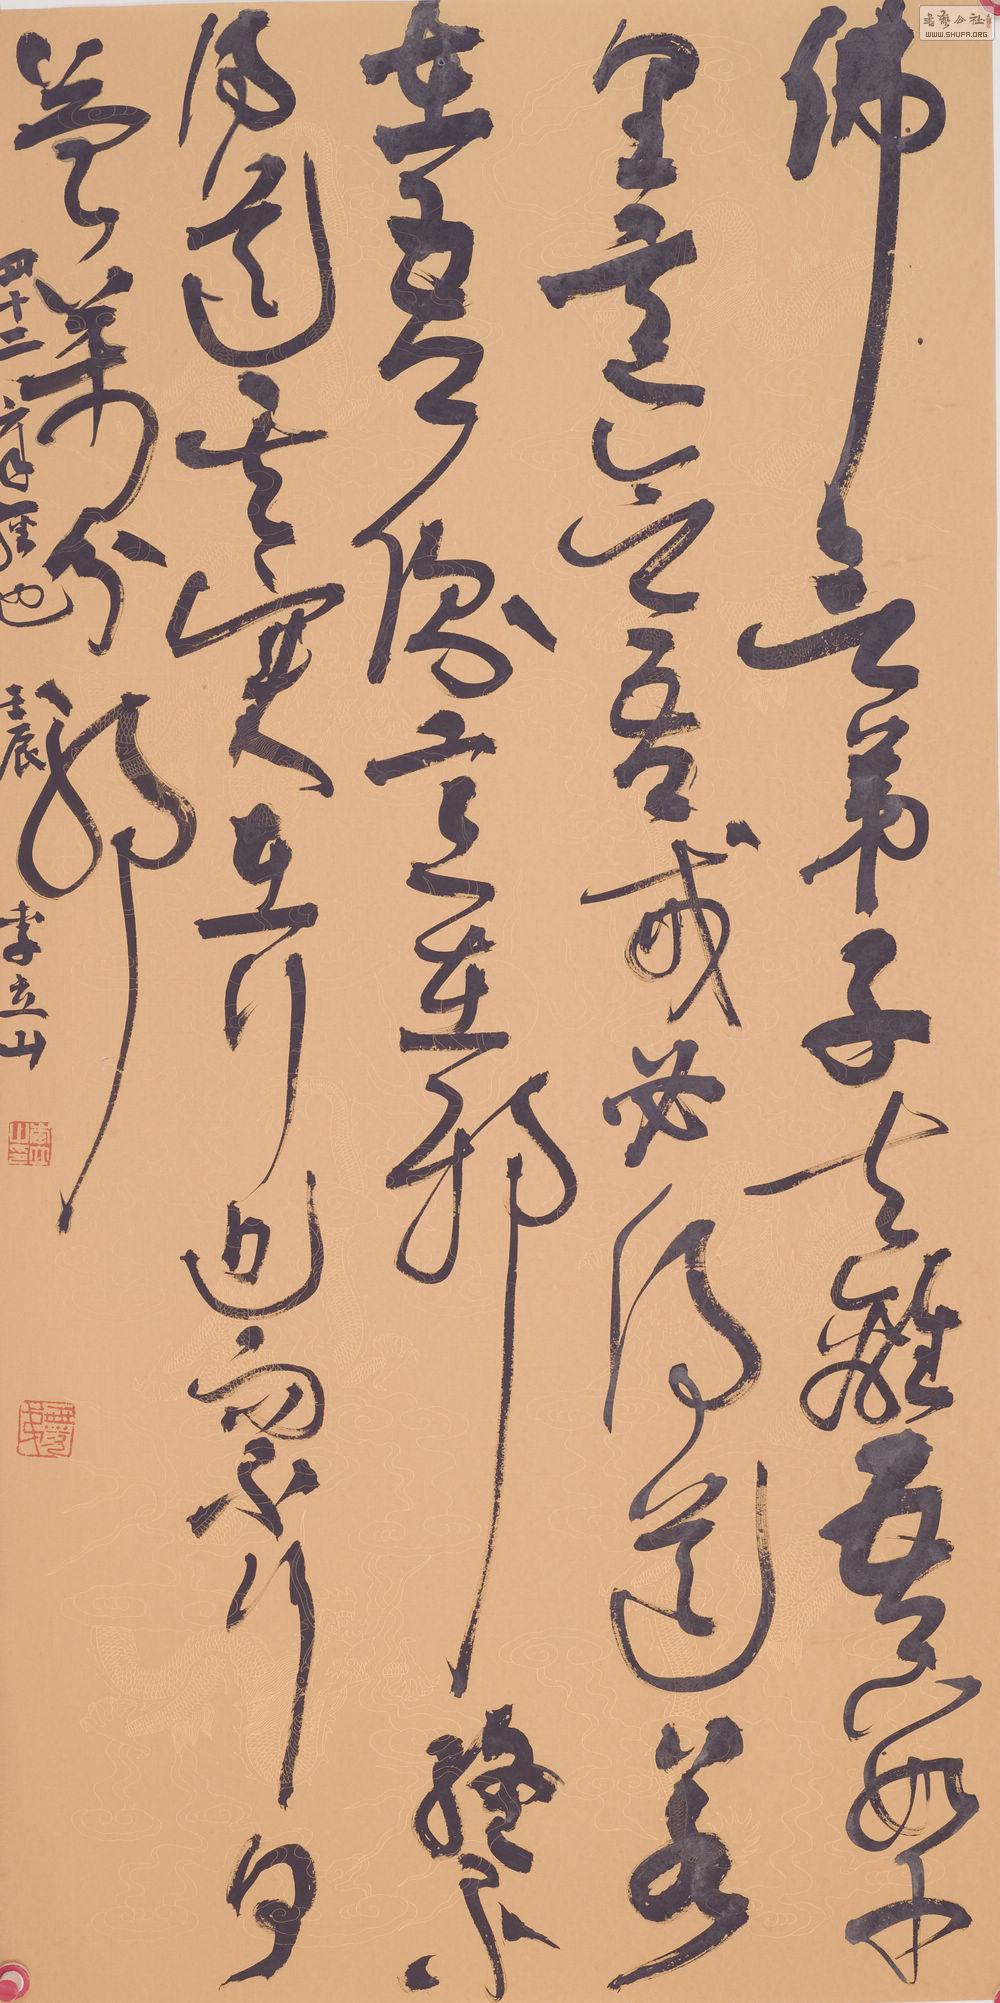 佛言弟子去離吾數千
里意念吾戒必得道若
在吾側意在邪終不
得道其實在行近而不行何
益萬分耶
四十二章經也 壬辰 李立山
WWW.SHUFA.ORG